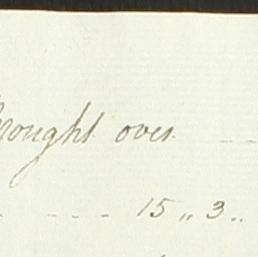 Brought over
15 ,, 3 ,,